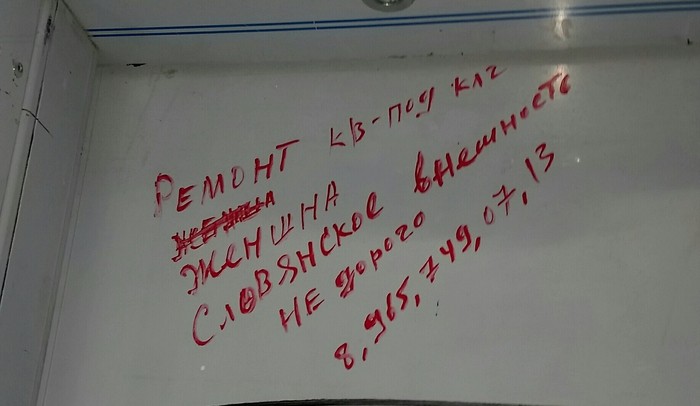 РЕМОНТ КВ-ПОД КЛГ
ЖЕНШНА
СЛОВЯНСКОЕ ВНЕШНОСТЬ
НЕ ДОРОГО
8,965,749,07,13